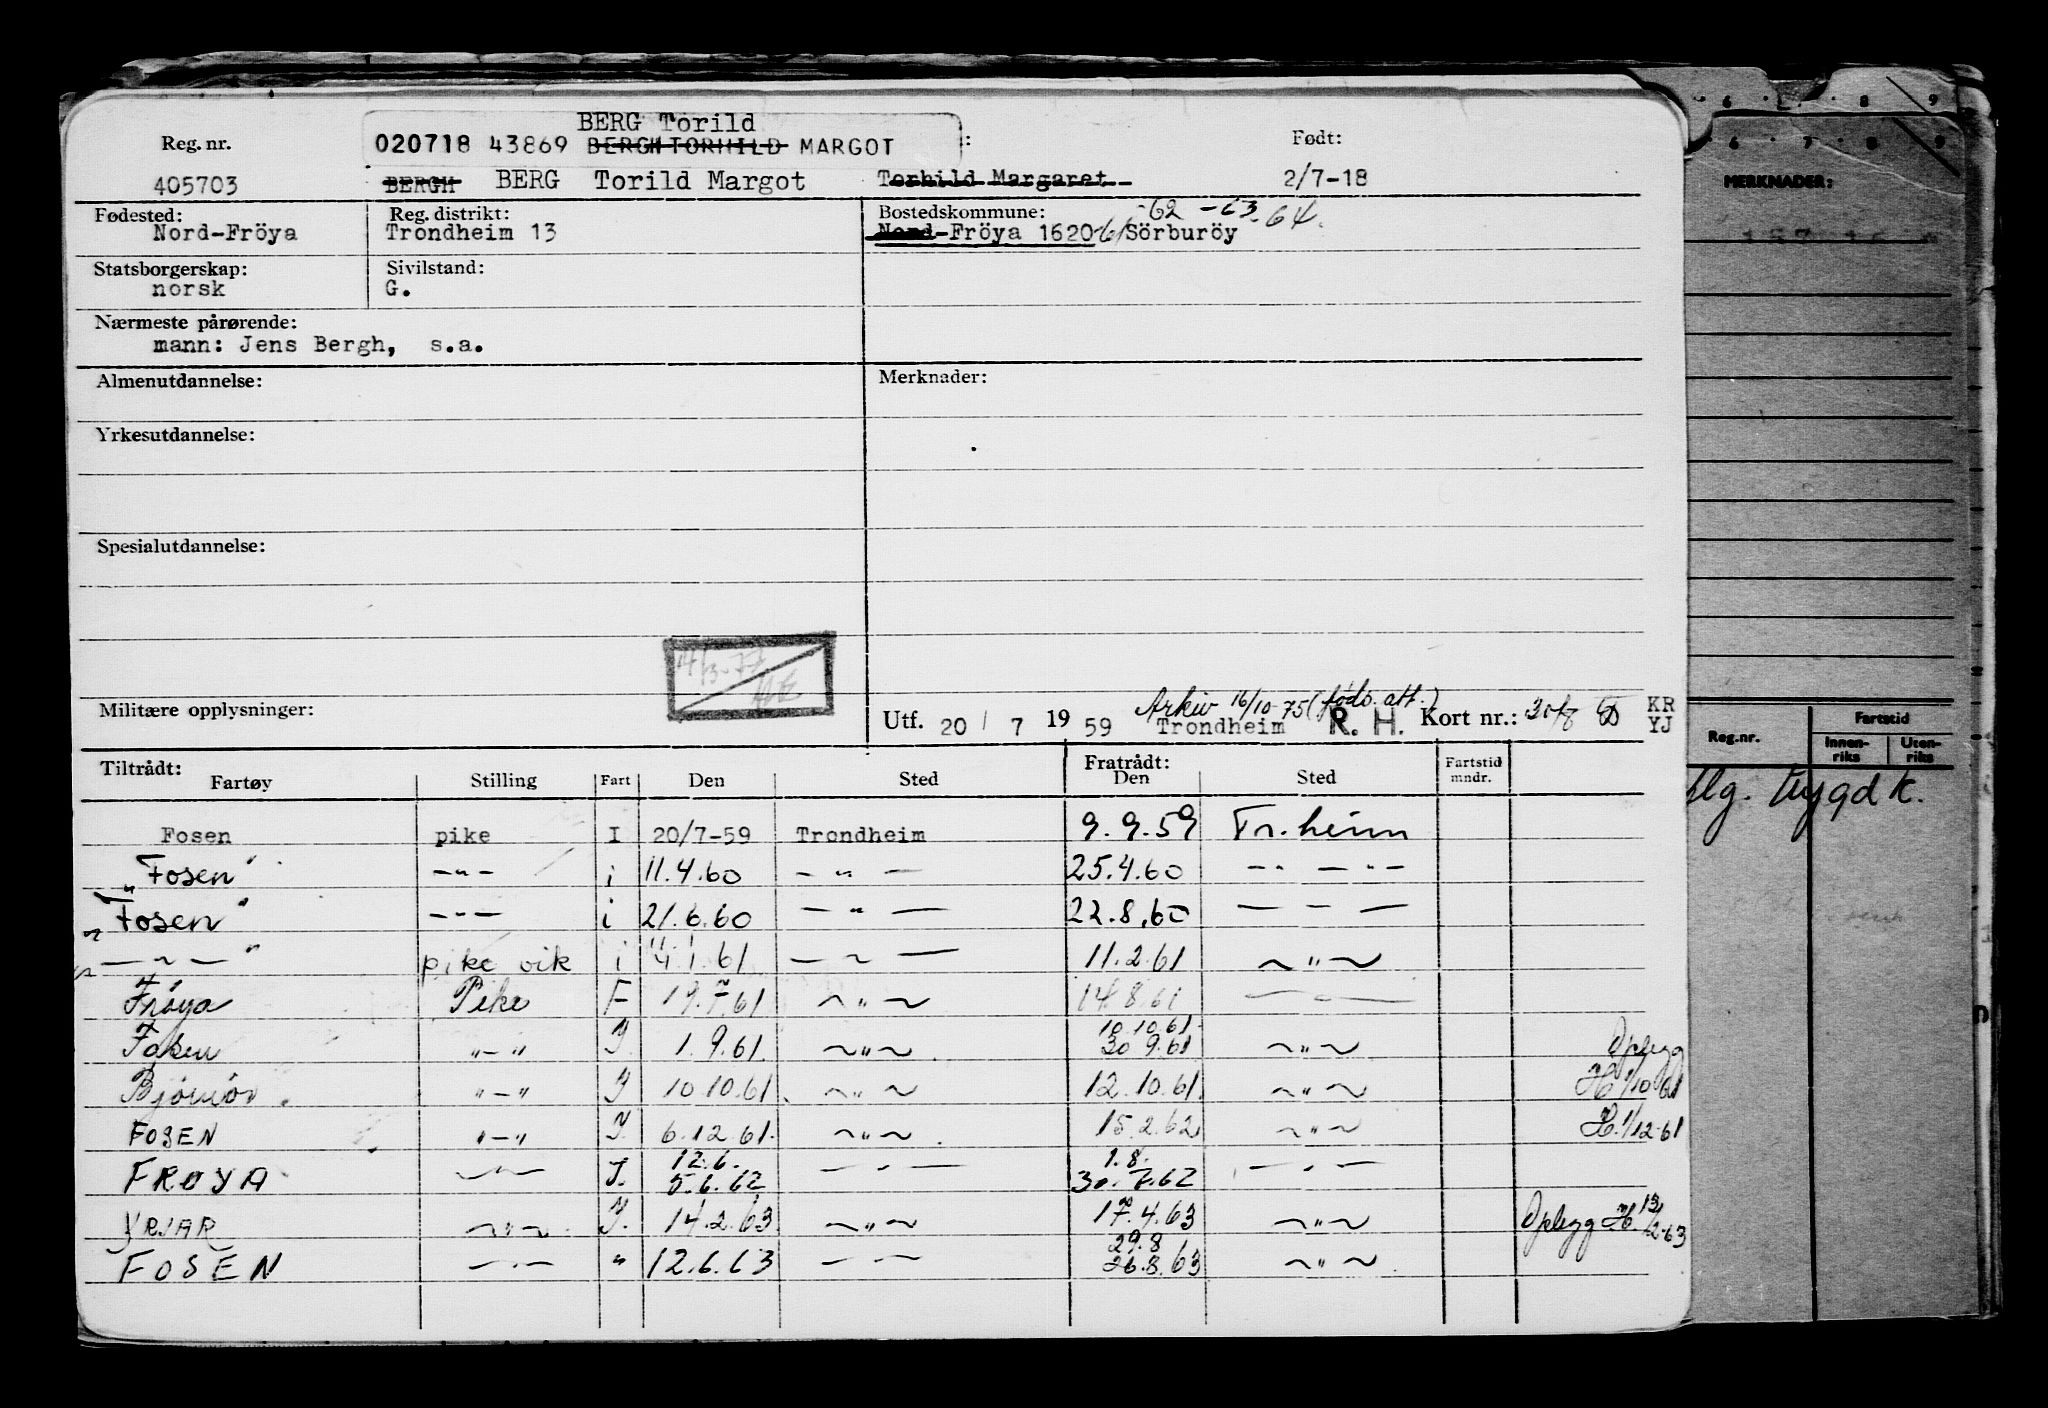 BERG Torild
Reg. nr. 020718 43869 BERGH TORHILD MARGOT : Født:
405703 BERGH BERG Torild Margot Torhild Margaret 2/7-18
Fødested: Reg. distrikt: Bostedskommune: -62 -63 -64.
Nord-Fröya Trondheim 13 Nord-Fröya 1620-61 Sörburöy
Statsborgerskap: Sivilstand:
norsk G.
Nærmeste pårørende:
mann: Jens Bergh, s.a.
Almenutdannelse: Merknader:
Yrkesutdannelse:
Spesialutdannelse:
Militære opplysninger:
Arkiv 16/10-75 (føds. att.)
Utf. 20 / 7 19 59 Trondheim R. H. Kort nr.: KR
YJ
Tiltrådt: Fratrådt: Fartstid
Fartøy Stilling Fart Den Sted Den Sted mndr.
Fosen pike I 20/7-59 Trondheim 9.9.59 Tr.heim
"Fosen" —"— i 11.4.60 — " — 25.4.60 —"— —"—
"Fosen" —"— i 21.6.60 — " — 22.8.60 — " —
"— " —" pike vik i 4.1.61 — " — 11.2.61 — " —
Fröya Pike F 19.7.61 — " — 14.8.61 — " —
10.10.61
Fosen "—" I. 1.9.61. — " — 30 9.61 — " — Oplegg
Bjørnør "—" I 10.10.61. — " — 12.10.61. — " — H. 1/10-61
FOSEN "—" I. 6.12.61. — " — 15.2.62 — " — H. 1/12-61
12.6. 1.8.
FRØYA —"— I. 5.6.62 — " — 30.7.62 — " —
YRJAR — " — I. 14.2.63 — " — 17.4.63 — " — Oplegg H. 13/2-63
29.8
FOSEN — " — " 12.6.63 — " — 26.8.63 — " —
6 8 9
6 7 8 9
MERKNADER:
Reg.nr. Fartstid
Innen-riks Uten-riks
flg. trygdk.